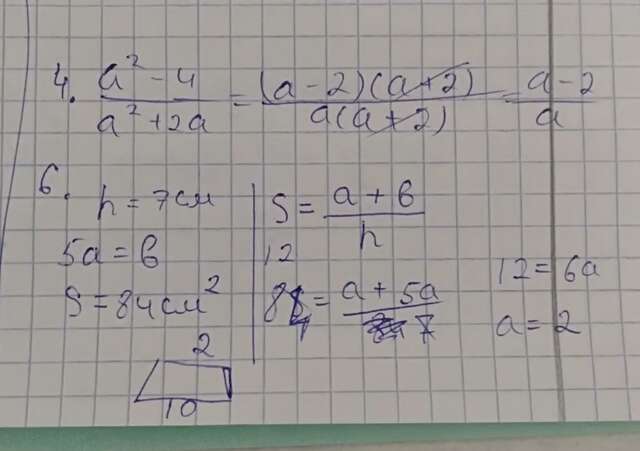 4. a² - 4 / a² + 2a = (a - 2)(a + 2) / a(a + 2) = a - 2 / a
6. h = 7см
5a = в
S = 84см²
2
10
S = a + в / h
12
84 = a + 5a / 7
12 = 6a
a = 2